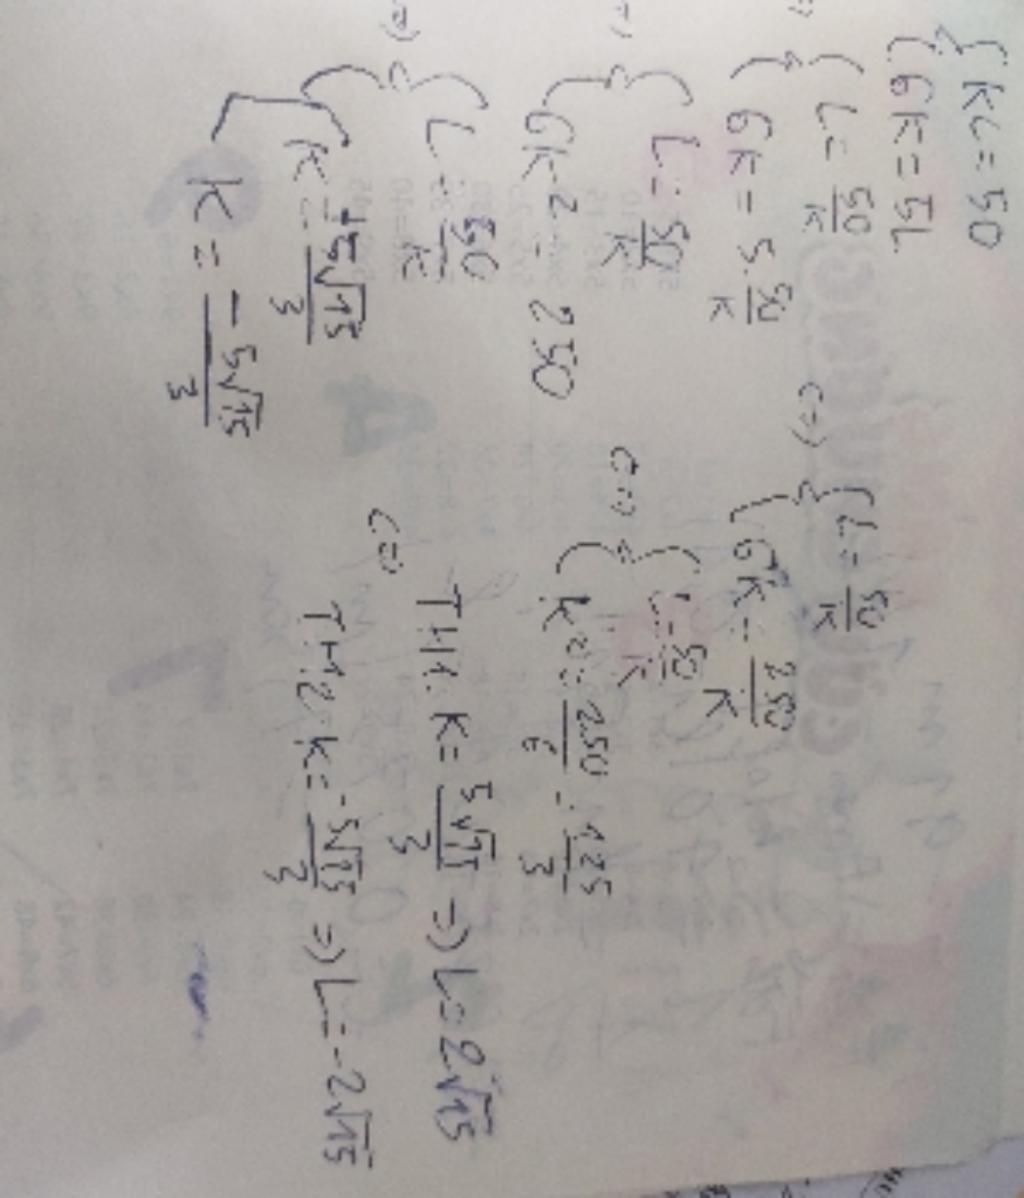 { KL = 50
6K = 5L
{ L = 50/K
6K = 5.50/K
<=> { L = 50/K
6K = 250/K
{ L = 50/K
6K² = 250
<=> { L = 50/K
K² = 250/6 = 125/3
{ L = 50/K
K = +5√15/3
K = -5√15/3
<=> TH1: K = 5√15/3 => L = 2√15
TH2: K = -5√15/3 => L = -2√15